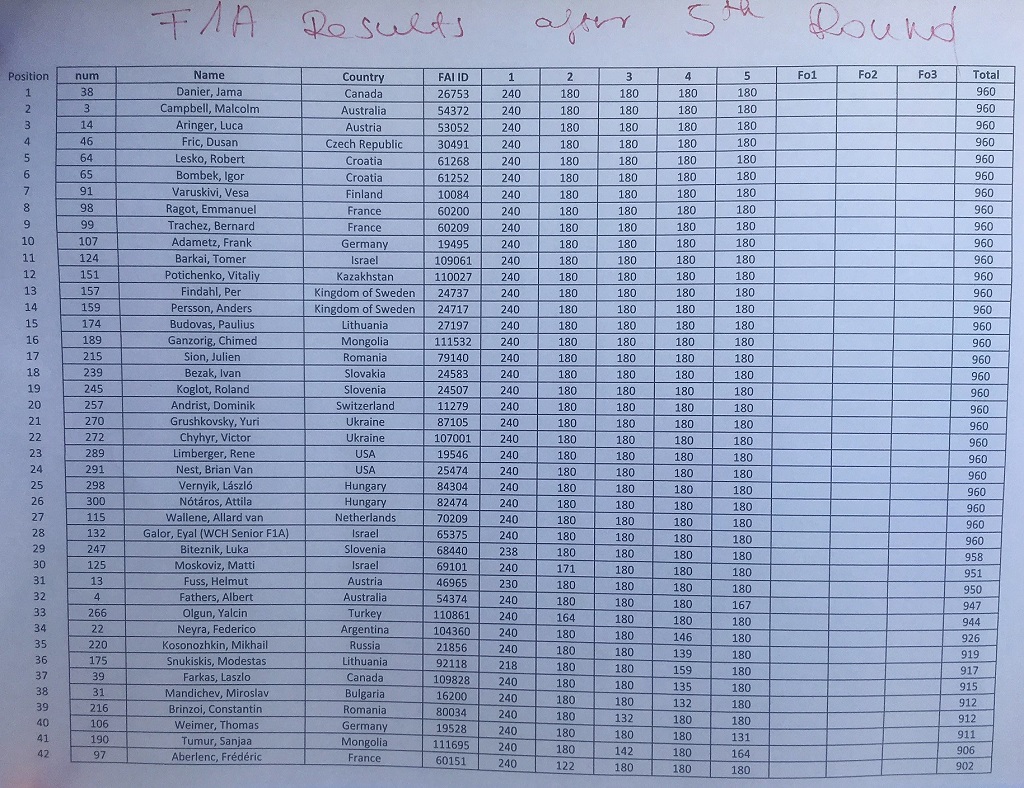 F1A Results after 5th Round
Position num Name Country FAI ID 1 2 3 4 5 Fo1 Fo2 Fo3 Total
1 38 Danier, Jama Canada 26753 240 180 180 180 180 960
2 3 Campbell, Malcolm Australia 54372 240 180 180 180 180 960
3 14 Aringer, Luca Austria 53052 240 180 180 180 180 960
4 46 Fric, Dusan Czech Republic 30491 240 180 180 180 180 960
5 64 Lesko, Robert Croatia 61268 240 180 180 180 180 960
6 65 Bombek, Igor Croatia 61252 240 180 180 180 180 960
7 91 Varuskivi, Vesa Finland 10084 240 180 180 180 180 960
8 98 Ragot, Emmanuel France 60200 240 180 180 180 180 960
9 99 Trachez, Bernard France 60209 240 180 180 180 180 960
10 107 Adametz, Frank Germany 19495 240 180 180 180 180 960
11 124 Barkai, Tomer Israel 109061 240 180 180 180 180 960
12 151 Potichenko, Vitaliy Kazakhstan 110027 240 180 180 180 180 960
13 157 Findahl, Per Kingdom of Sweden 24737 240 180 180 180 180 960
14 159 Persson, Anders Kingdom of Sweden 24717 240 180 180 180 180 960
15 174 Budovas, Paulius Lithuania 27197 240 180 180 180 180 960
16 189 Ganzorig, Chimed Mongolia 111532 240 180 180 180 180 960
17 215 Sion, Julien Romania 79140 240 180 180 180 180 960
18 239 Bezak, Ivan Slovakia 24583 240 180 180 180 180 960
19 245 Koglot, Roland Slovenia 24507 240 180 180 180 180 960
20 257 Andrist, Dominik Switzerland 11279 240 180 180 180 180 960
21 270 Grushkovsky, Yuri Ukraine 87105 240 180 180 180 180 960
22 272 Chyhyr, Victor Ukraine 107001 240 180 180 180 180 960
23 289 Limberger, Rene USA 19546 240 180 180 180 180 960
24 291 Nest, Brian Van USA 25474 240 180 180 180 180 960
25 298 Vernyik, László Hungary 84304 240 180 180 180 180 960
26 300 Nótáros, Attila Hungary 82474 240 180 180 180 180 960
27 115 Wallene, Allard van Netherlands 70209 240 180 180 180 180 960
28 132 Galor, Eyal (WCH Senior F1A) Israel 65375 240 180 180 180 180 960
29 247 Biteznik, Luka Slovenia 68440 238 180 180 180 180 958
30 125 Moskoviz, Matti Israel 69101 240 171 180 180 180 951
31 13 Fuss, Helmut Austria 46965 230 180 180 180 180 950
32 4 Fathers, Albert Australia 54374 240 180 180 180 167 947
33 266 Olgun, Yalcin Turkey 110861 240 164 180 180 180 944
34 22 Neyra, Federico Argentina 104360 240 180 180 146 180 926
35 220 Kosonozhkin, Mikhail Russia 21856 240 180 180 139 180 919
36 175 Snukiskis, Modestas Lithuania 92118 218 180 180 159 180 917
37 39 Farkas, Laszlo Canada 109828 240 180 180 135 180 915
38 31 Mandichev, Miroslav Bulgaria 16200 240 180 180 132 180 912
39 216 Brinzoi, Constantin Romania 80034 240 180 132 180 180 912
40 106 Weimer, Thomas Germany 19528 240 180 180 180 131 911
41 190 Tumur, Sanjaa Mongolia 111695 240 180 142 180 164 906
42 97 Aberlenc, Frédéric France 60151 240 122 180 180 180 902